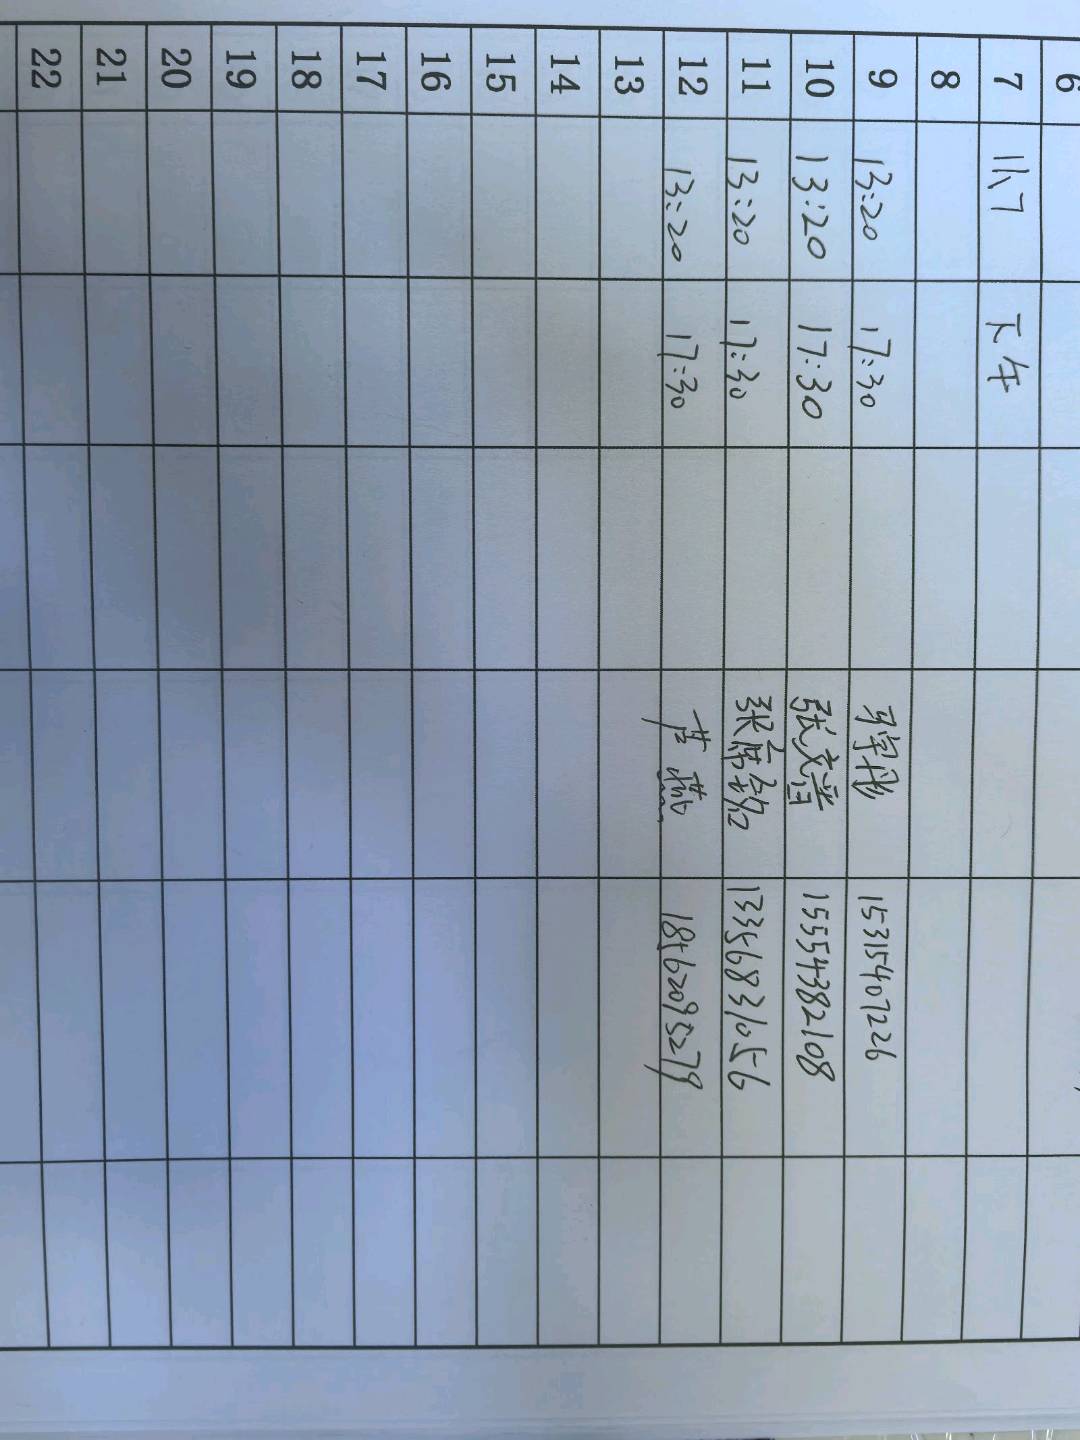 6
7 11\7 下午
8
9 13:20 17:30 15315407226
10 13:20 17:30 张克普 15554382108
11 13:20 17:30 张席铭 13356831056
12 13:20 17:30 芦燕 18562095279
13
14
15
16
17
18
19
20
21
22